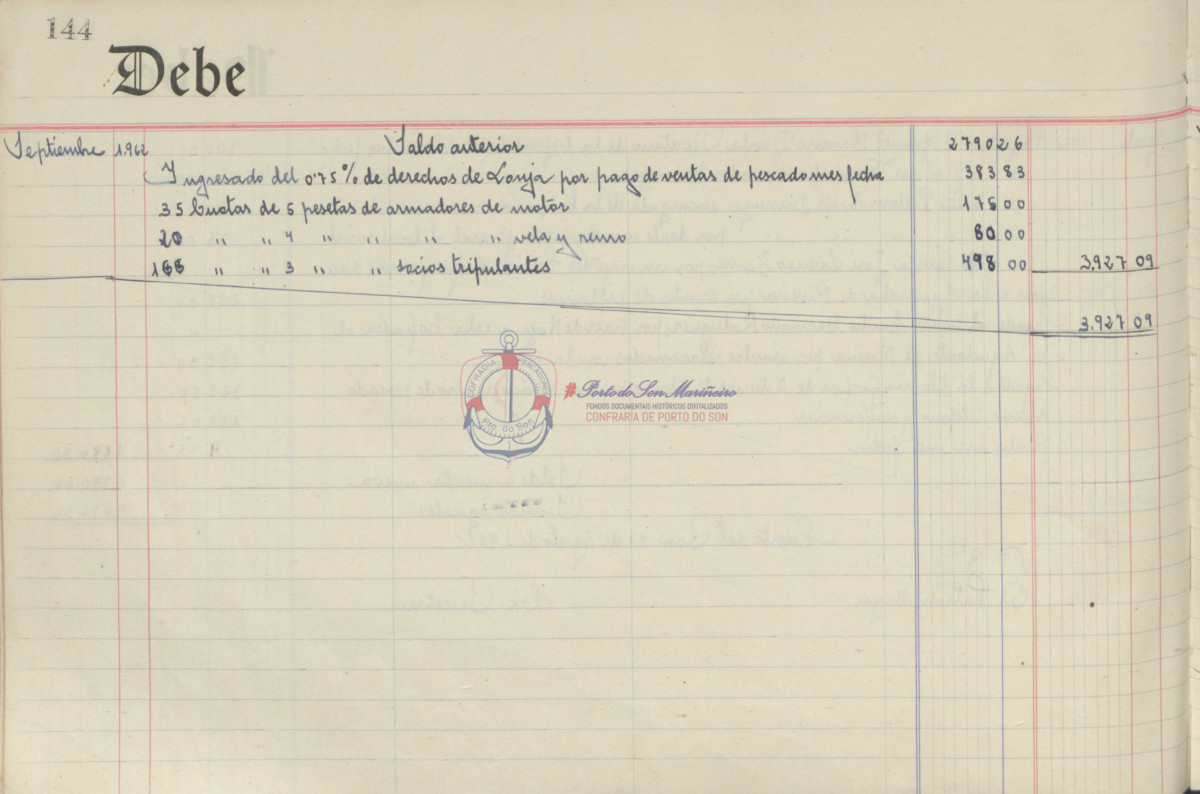 144
Debe
Septiembre 1.962 Saldo anterior 2790 26
Ingresado del 0'75 % de derechos de Lonja por pago de ventas de pescado mes fecha 383 83
35 Cuotas de 5 pesetas de armadores de motor 175 00
20 " " 4 " " " " vela y remo 80 00
166 " " 3 " " socios tripulantes 498 00 3.927 09
3.927 09
COFRADIA PESCADORES
Pto. do Son
#Porto do Son Mariñeiro
FONDOS DOCUMENTAIS HISTÓRICOS DIGITALIZADOS
CONFRARÍA DE PORTO DO SON